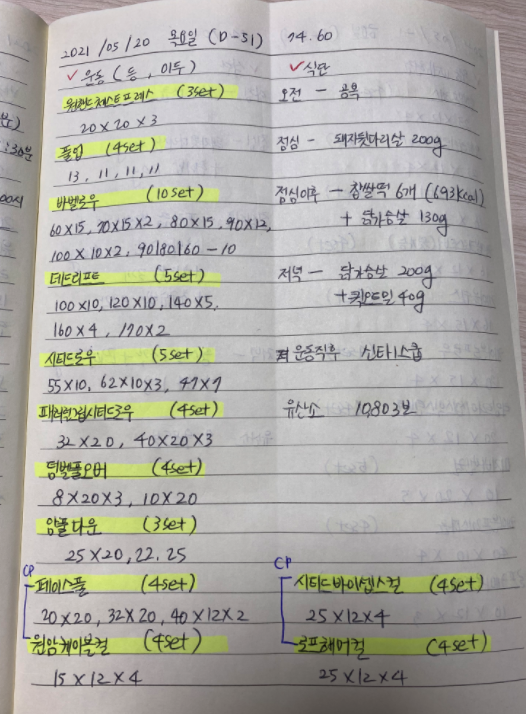 2021 / 05 / 20 목요일 (D-51) 74.60
✓ 운동 (등, 이두)
원핸드체스트프레스 (3set)
20 X 20 X 3
풀업 (4set)
13, 11, 11, 11
바벨로우 (10set)
60X15, 70X15X2, 80X15, 90X12,
100X10X2, 90|80|60-10
데드리프트 (5set)
100X10, 120X10, 140X5,
160X4, 170X2
시티드로우 (5set)
55X10, 62X10X3, 47X7
패러럴그립시티드로우 (4set)
32X20, 40X20X3
덤벨풀오버 (4set)
8X20X3, 10X20
암풀다운 (3set)
25X20, 22, 25
CP
페이스풀 (4set)
20X20, 32X20, 40X12X2
원암케이블컬 (4set)
15X12X4
✓ 식단
오전 - 공복
점심 - 돼지뒷다리살 200g
점심이후 - 찹쌀떡 6개 (693kcal)
+ 닭가슴살 130g
저녁 - 닭가슴살 200g
+ 퀵오트밀 40g
운동직후 신타1스쿱
유산소 10,803보
CP
시티드바이셉스컬 (4set)
25X12X4
로프해머컬 (4set)
25X12X4